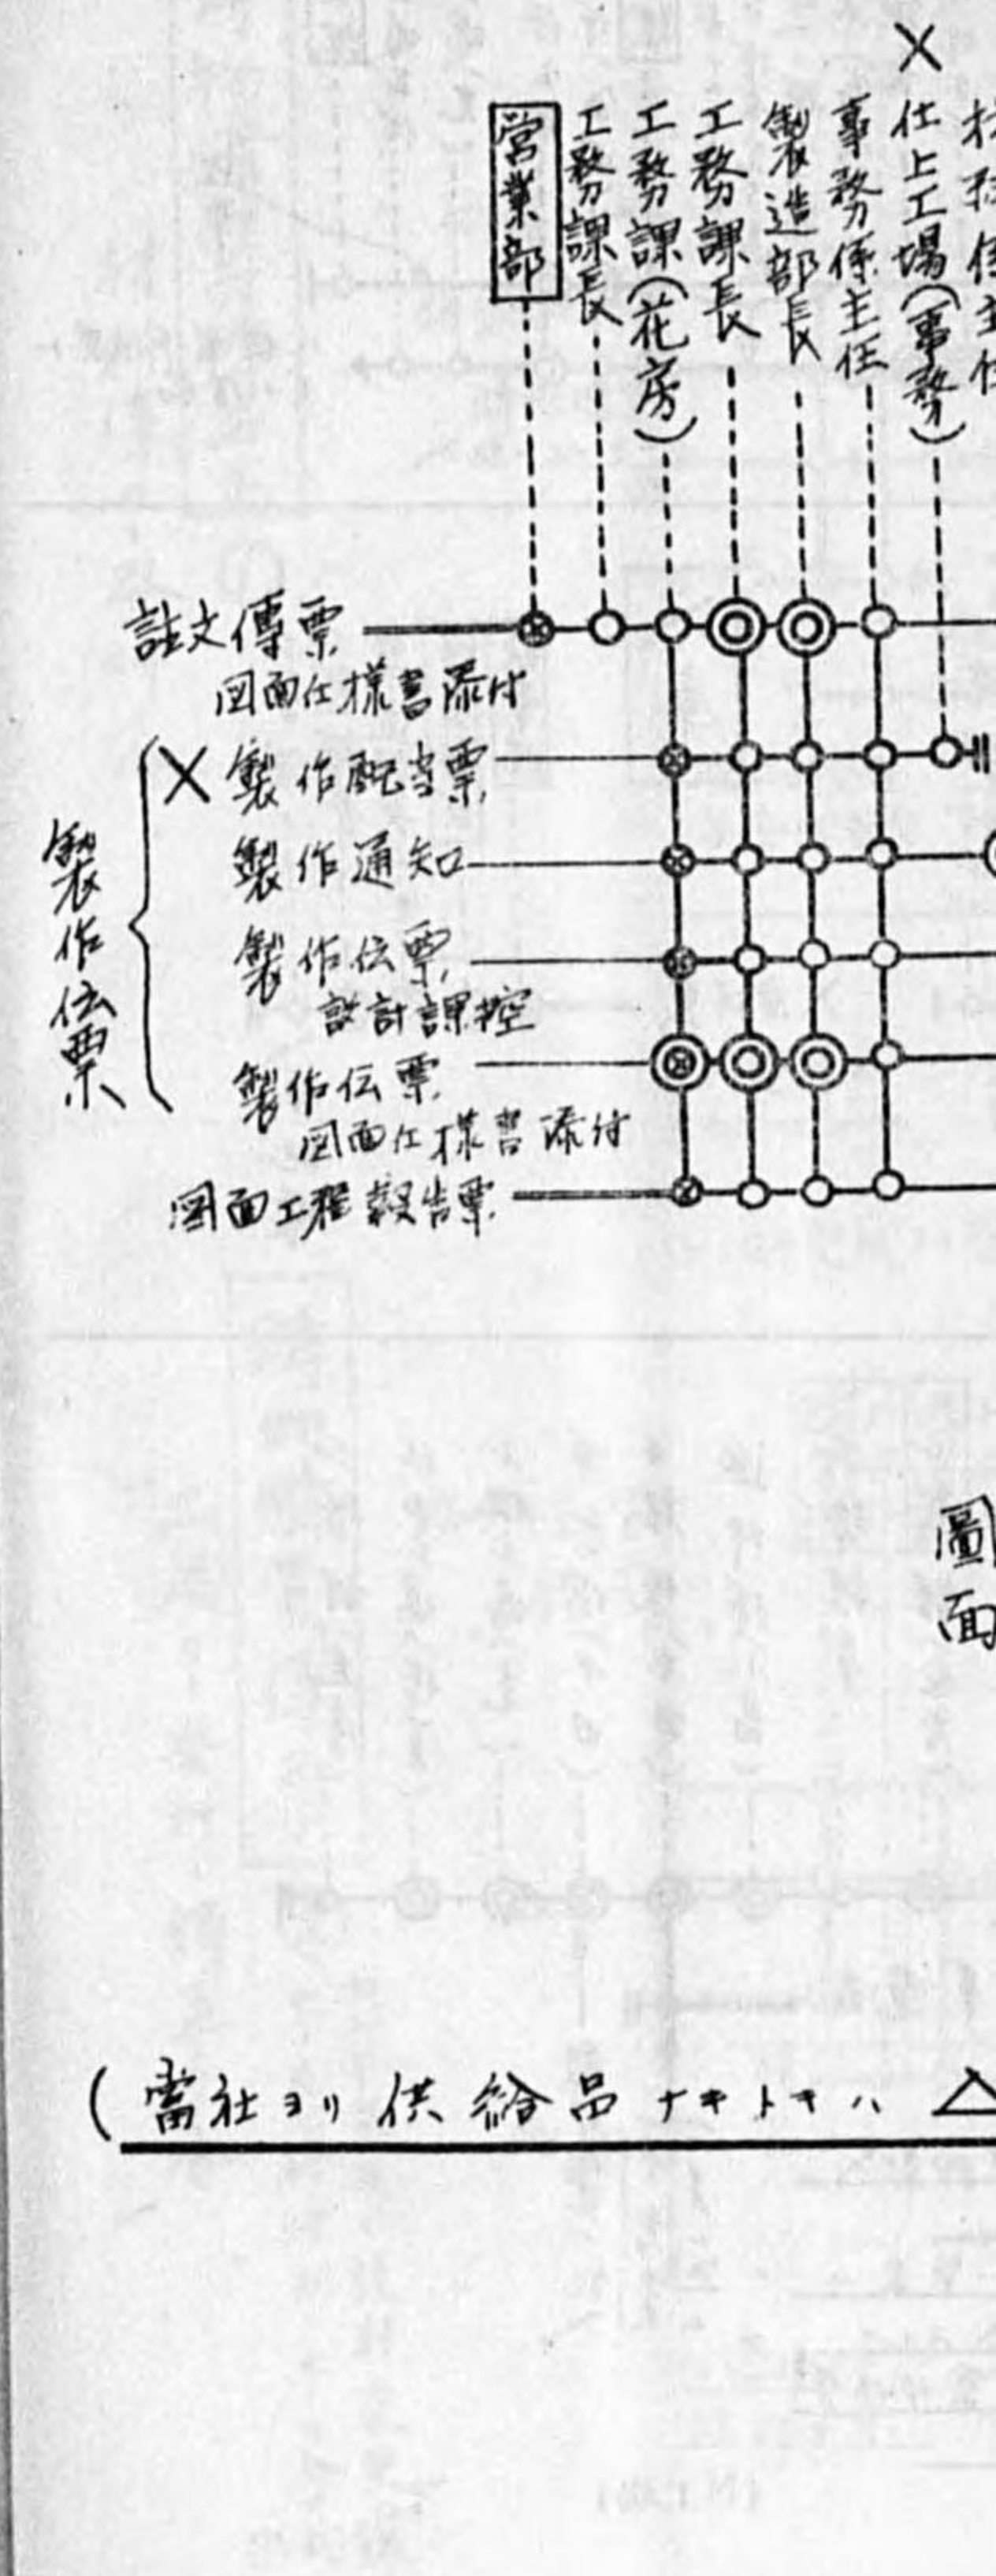 ×
営業部
工務課長
工務課(花房)
工務課長
製造部長
事務係主任
仕上工場(事務)
係主任
註文傳票
図面仕様書添付
製作伝票
× 製作配当票
製作通知
製作伝票
設計課控
製作伝票
図面仕様書添付
図面工程報告票
圖面
(當社ヨリ供給品ナキトキハ △